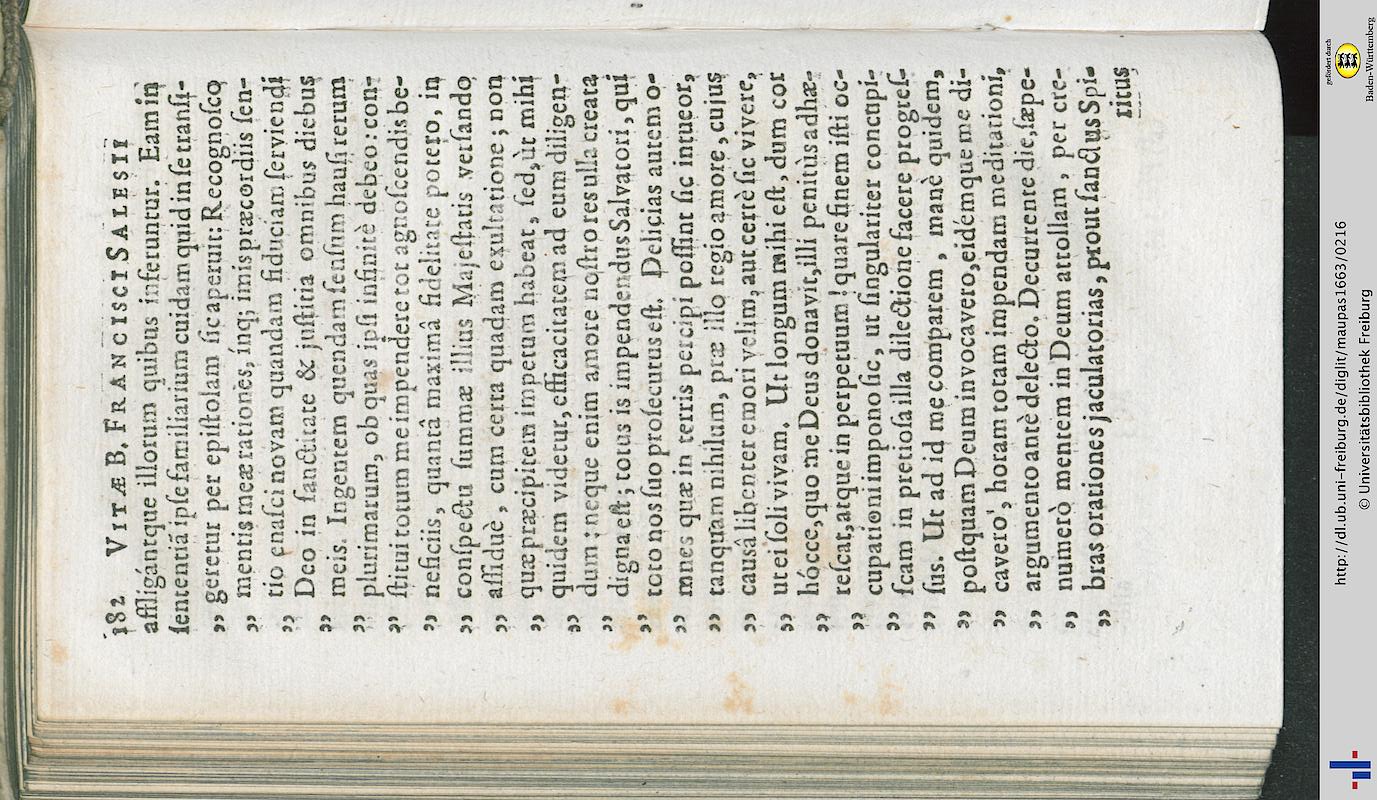 182 VITÆ B. FRANCISCI SALESII
affligántque illorum quibus inferuntur. Eam in
ſententiâ ipſe familiarium cuidam quid in ſe tranſi-
„ geretur per epiſtolam ſic aperuit: Recognoſco
„ mentis meæ rationes, ínq; imis præcordiis ſen-
„ tio enaſci novam quandam fiduciam ſerviendi
„ Deo in ſanctitate & juſtitia omnibus diebus
„ meis. Ingentem quendam ſenſum hauſi rerum
„ plurimarum, ob quas ipſi infinitè debeo: con-
„ ſtitui totum me impendere tot agnoſcendis be-
„ neficiis, quantâ maximâ fidelitate potero, in
„ conſpectu ſummæ illius Majeſtatis verſando
„ aſſiduè, cum certa quadam exultatione; non
„ quæ præcipitem impetum habeat, ſed, ùt mihi
„ quidem videtur, efficacitatem ad eum diligen-
„ dum: neque enim amore noſtro res ulla creata
„ digna eſt; totus is impendendus Salvatori, qui
„ toto nos ſuo proſecutus eſt. Delicias autem o-
„ mnes quæ in terris percipi poſſint ſic intueor,
„ tanquam nihilum, præ illo regio amore, cujus
„ causâ libenter emori velim, aut certè ſic vivere,
„ ut ei ſoli vivam. Ut longum mihi eſt, dum cor
„ hócce, quo me Deus donavit, illi penitùs adhæ-
„ reſcat, atque in perpetuum! quare finem iſti oc-
„ cupationi impono ſic, ut ſingulariter concupi-
„ ſcam in pretioſa illa dilectione facere progreſ-
„ ſus. Ut ad id me comparem, manè quidem,
„ poſtquam Deum invocavero, eidémque me di-
„ cavero', horam totam impendam meditationi,
„ argumento antè delecto. Decurrente die, ſæpe-
„ numerò mentem in Deum attollam, per cre-
„ bras orationes jaculatorias, prout ſanctus Spi-
ritus
http://dl.ub.uni-freiburg.de/diglit/maupas1663/0216
© Universitätsbibliothek Freiburg
gefördert durch
Baden-Württemberg